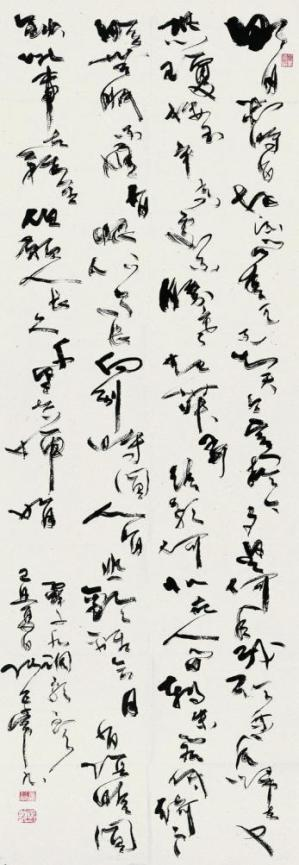 明月几时有把酒问青天不知天上宫阙今夕是何年我欲乘风归去又
恐琼楼玉宇高处不胜寒起舞弄清影何似在人间转朱阁低绮户
照无眠不应有恨何事长向别时圆人有悲欢离合月有阴晴圆
缺此事古难全但愿人长久千里共婵娟
己丑夏日